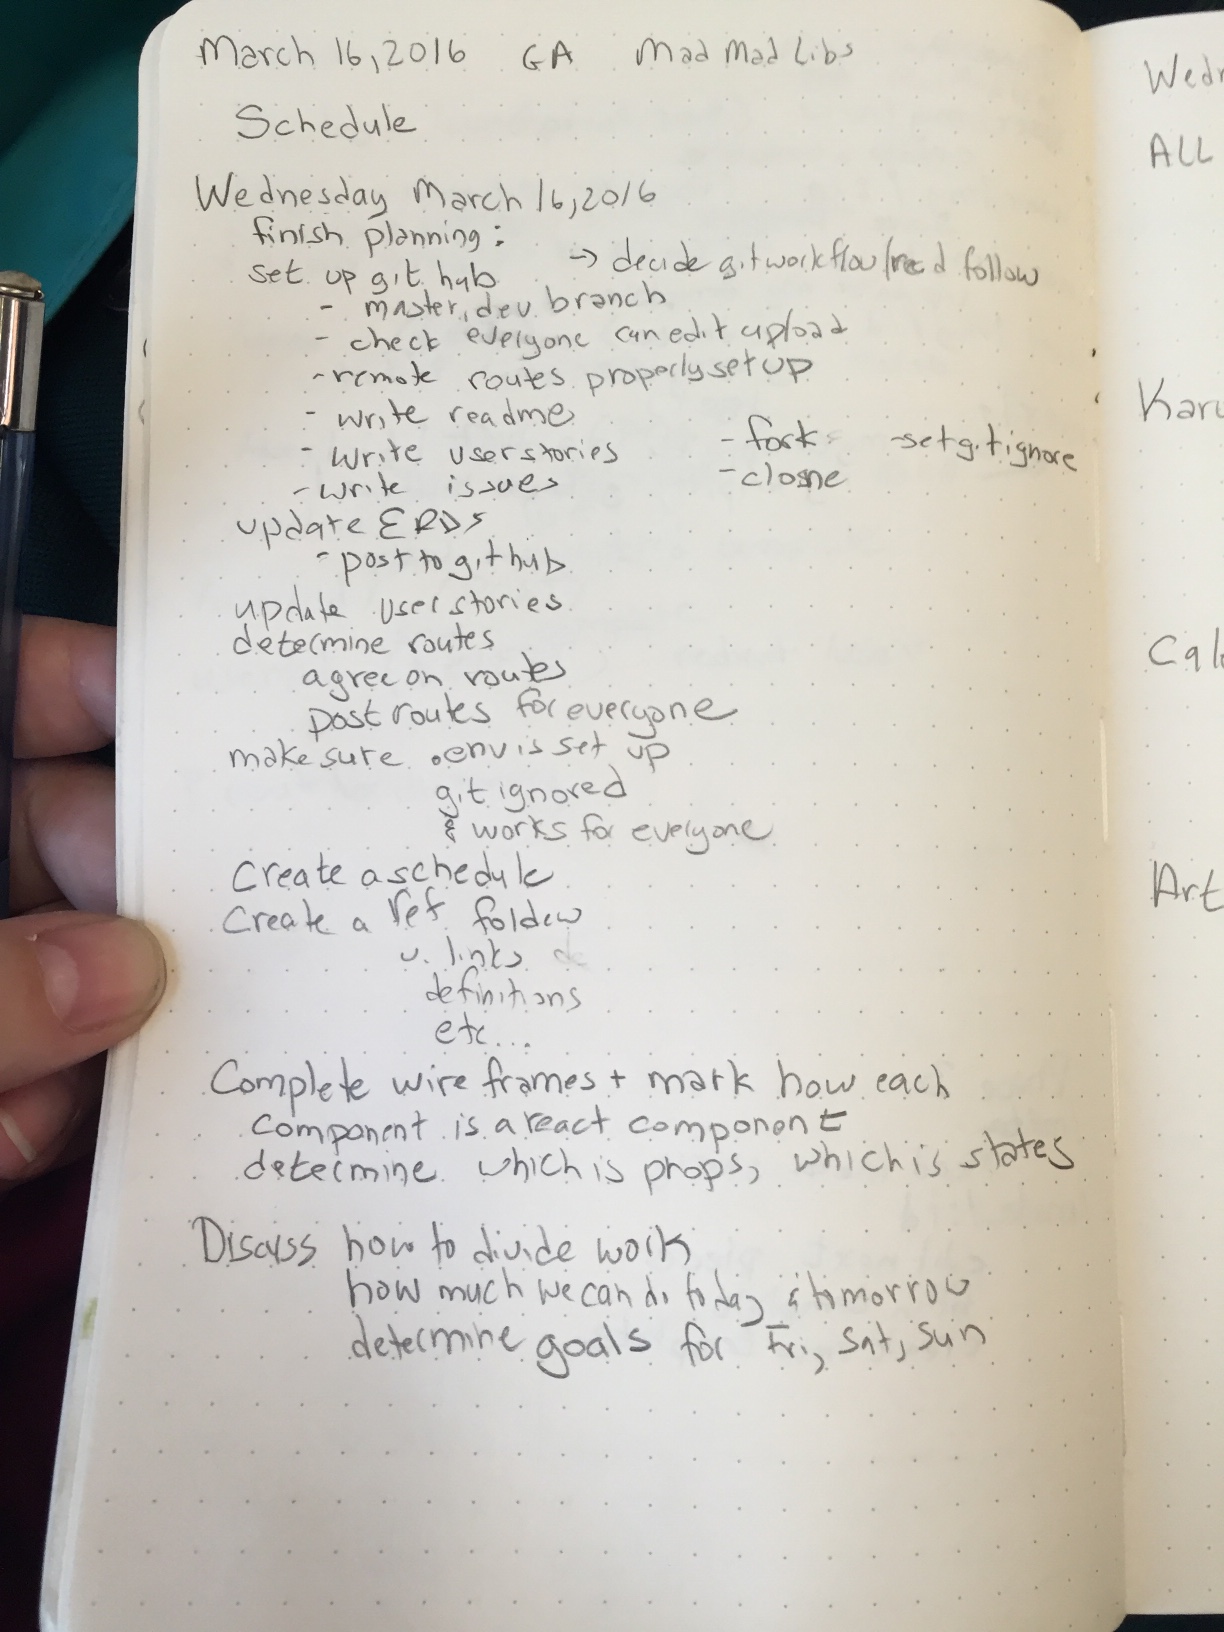 March 16, 2016 GA Mad Mad Libs
Schedule
Wednesday March 16, 2016
finish planning:
set up git hub → decide git workflow/read follow
- master, dev branch
- check everyone can edit upload
- remote routes properly set up
- write readme
- write user stories - fork - set gitignore
- write issues - clone
update ERDs
- post to github
update user stories
determine routes
agree on routes
post routes for everyone
make sure .env is set up
git ignored
& works for everyone
Create a schedule
Create a ref folder
w. links
definitions
etc...
Complete wire frames + mark how each
component is a react component
determine which is props, which is states
Discuss how to divide work
how much we can do today & tomorrow
determine goals for Fri, Sat, Sun
Wedn
ALL
Karu
Cal
Art